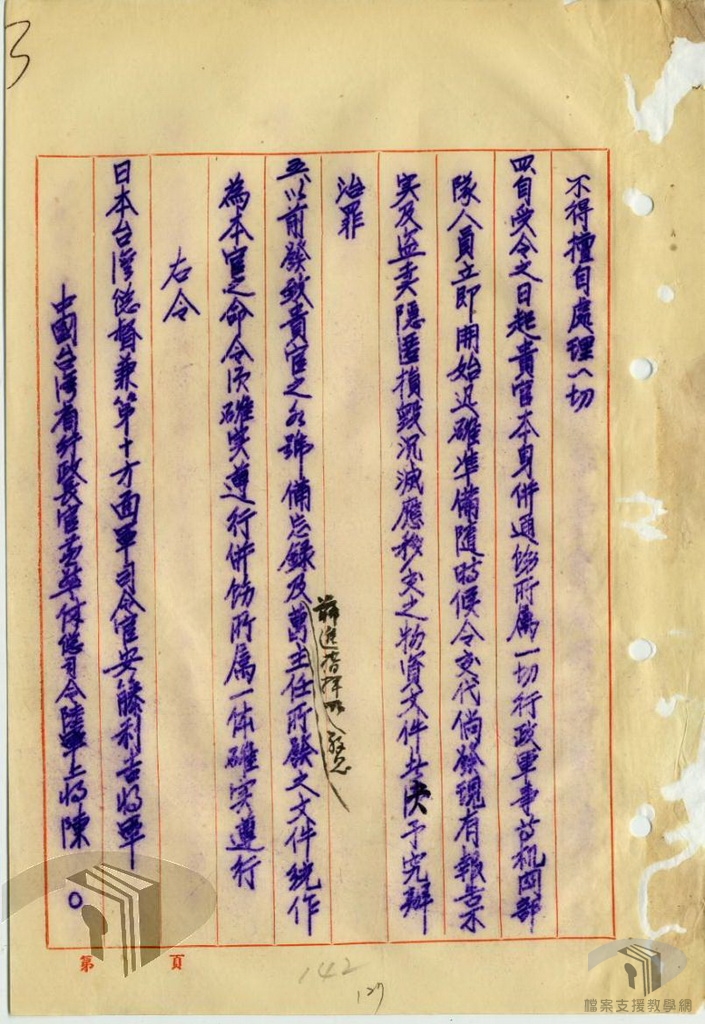 3
不得擅自處理一切
四、自受令之日起貴官本身併通飭所属一切行政軍事等机関部
隊人員立即開始迅確準備随時候令交代倘發現有報告不
实及盗卖隐匿損毀沉滅應移交之物資文件者决予究辦
治罪
五、以前發致貴官之各號備忘録及萬主任所發之文件統作
前進指揮所
為本官之命令須確实遵行併飭所属一体確实遵行
右令
日本台湾總督兼第十方面軍司令官安藤利吉将軍
中國台湾省行政長官兼警備總司令陸軍上将陳○
第 頁
142
127
檔案支援教學網